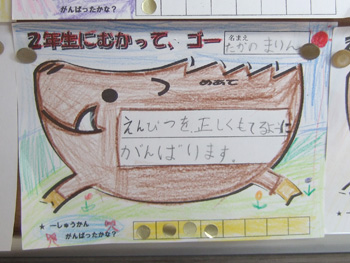 がんばったかな?
2年生にむかって、ゴー
名まえ
たかの まりん
めあて
えんぴつを正しくもてるように
がんばります。
★ 一しゅうかん
がんばったかな?